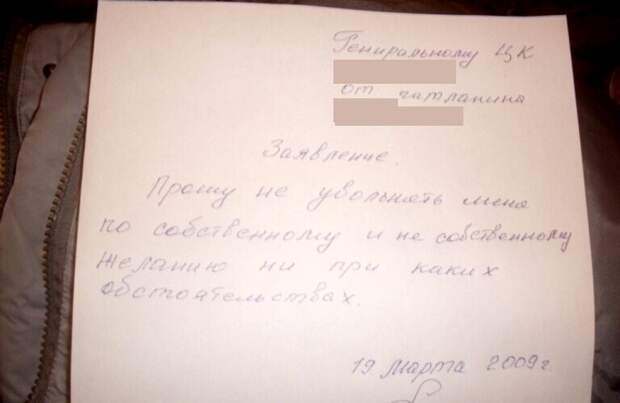 Гениральному ЦК
от чатланина
Заявление.
Прошу не увольнять меня
по собственному и не собственному
желанию ни при каких
обстоятельствах.
19 марта 2009г.